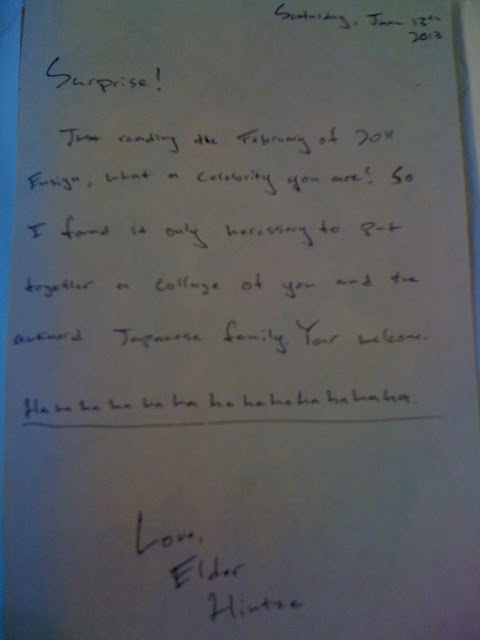 Saturday, June
2013
Surprise!
Just reading the February of 2011
Ensign, what a celebrity you are! So
I found it only necessary to put
together a collage of you and the
awkward Japanese family. Your welcome.
Ha ha ha ha ha ha ha ha ha ha ha ha ha.
Love,
Elder
Hintze